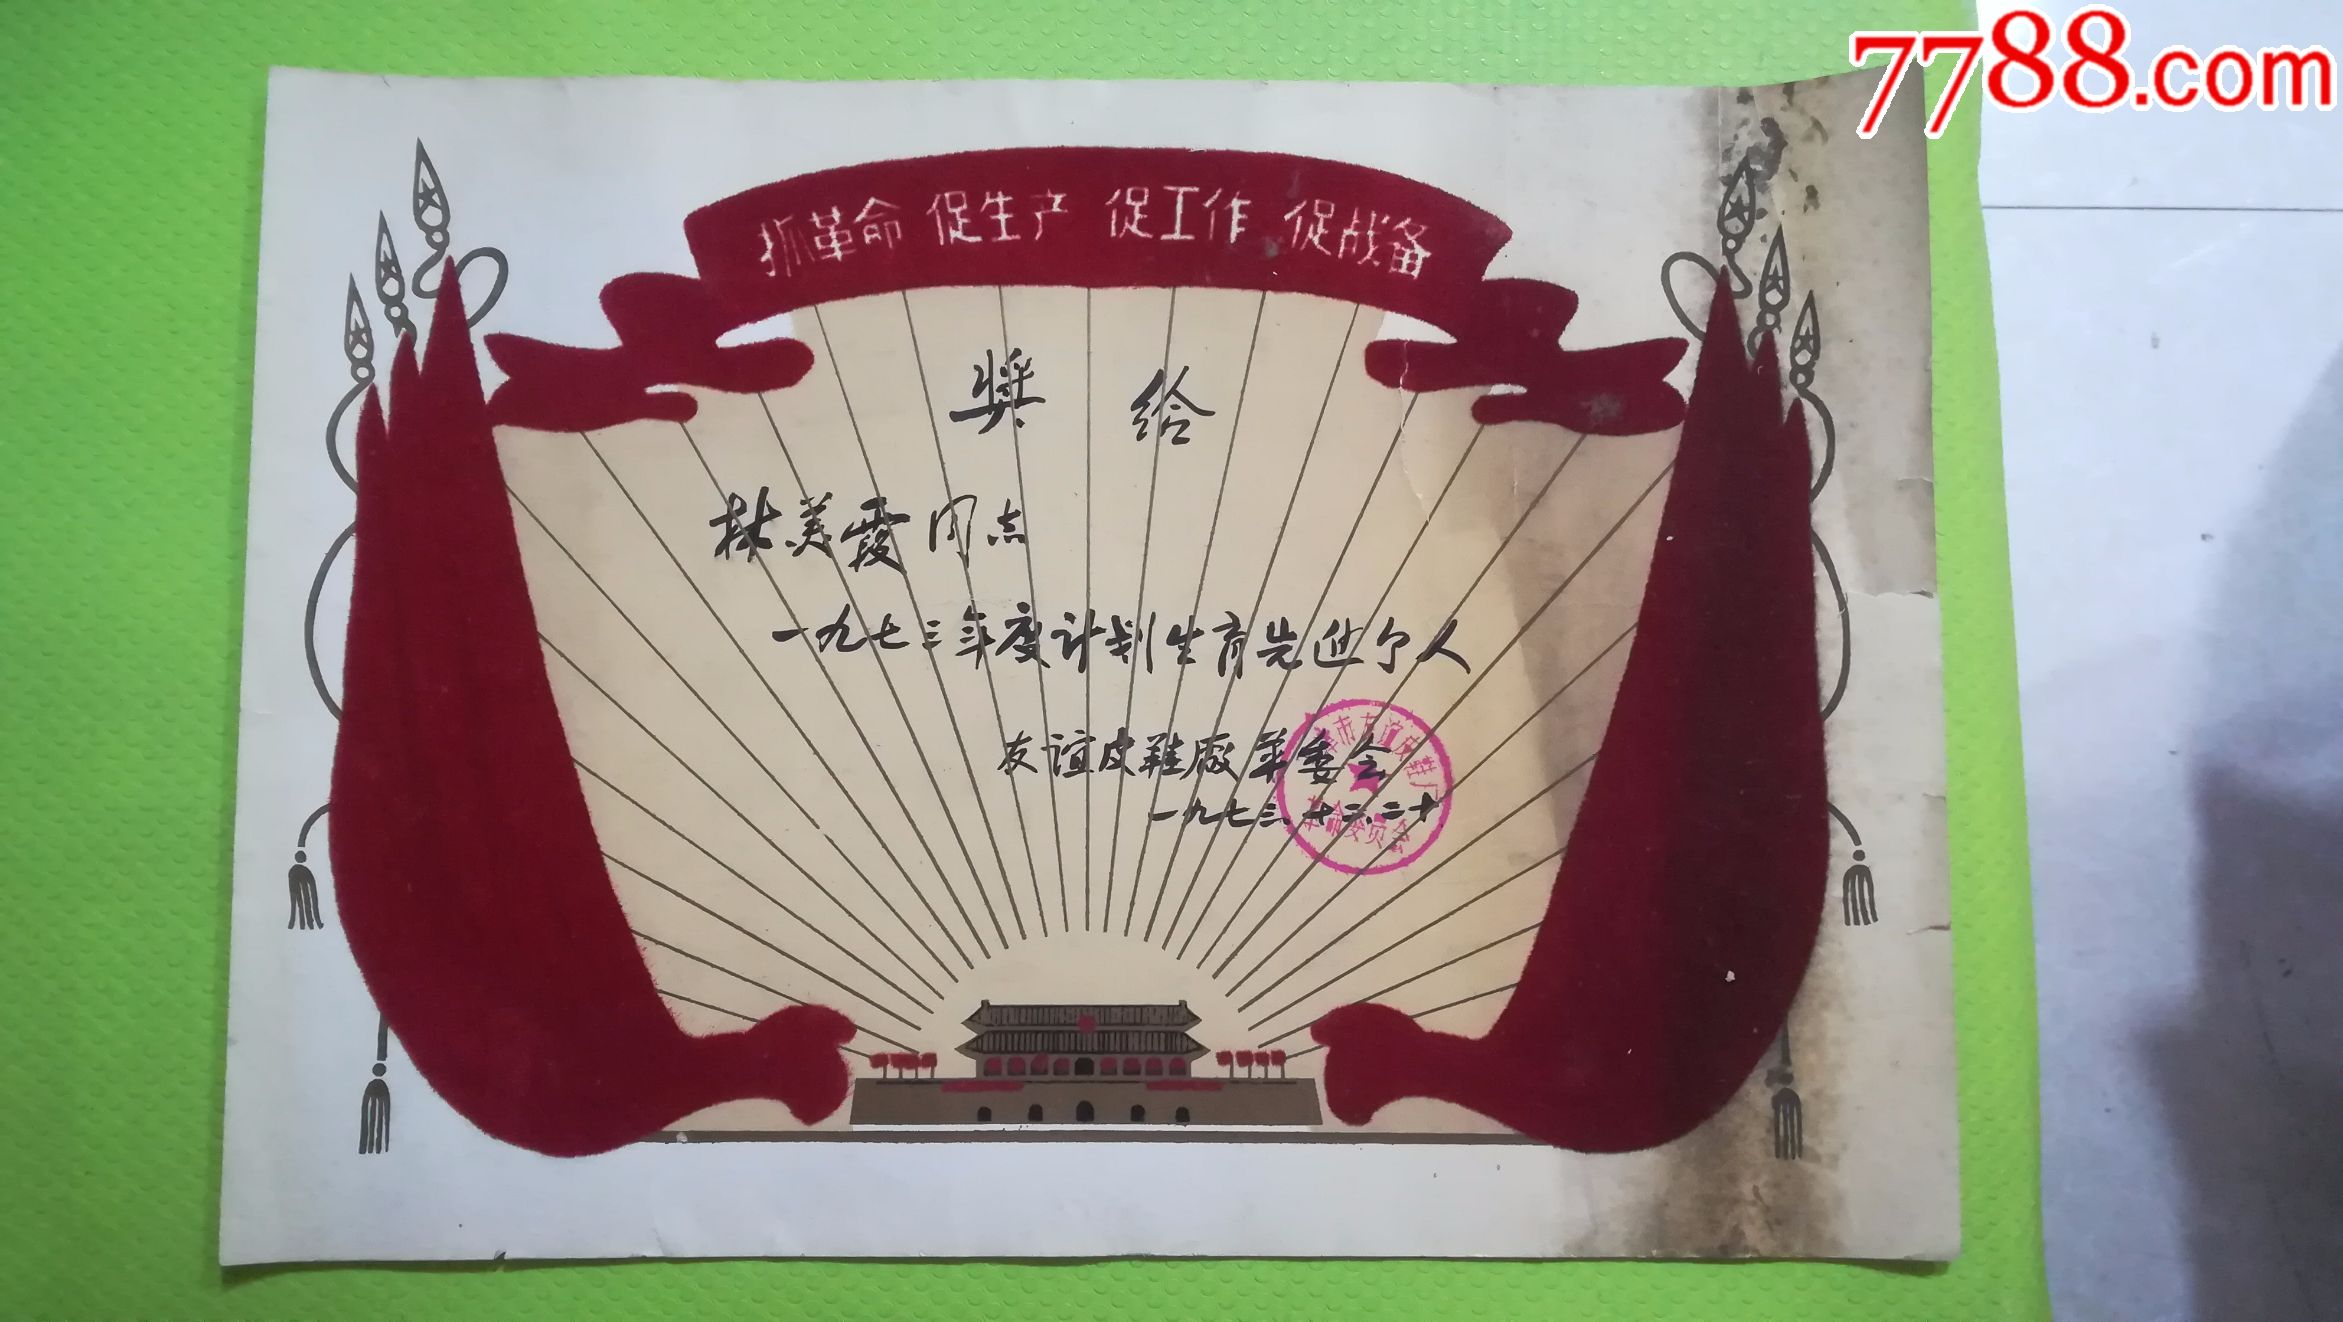 7788.com
抓革命 促生产 促工作 促战备
奖 给
林美霞同志
一九七三年度计划生育先进个人
友谊皮鞋厰革委会
一九七三.十二.二十
市友谊皮鞋厂
革命委员会